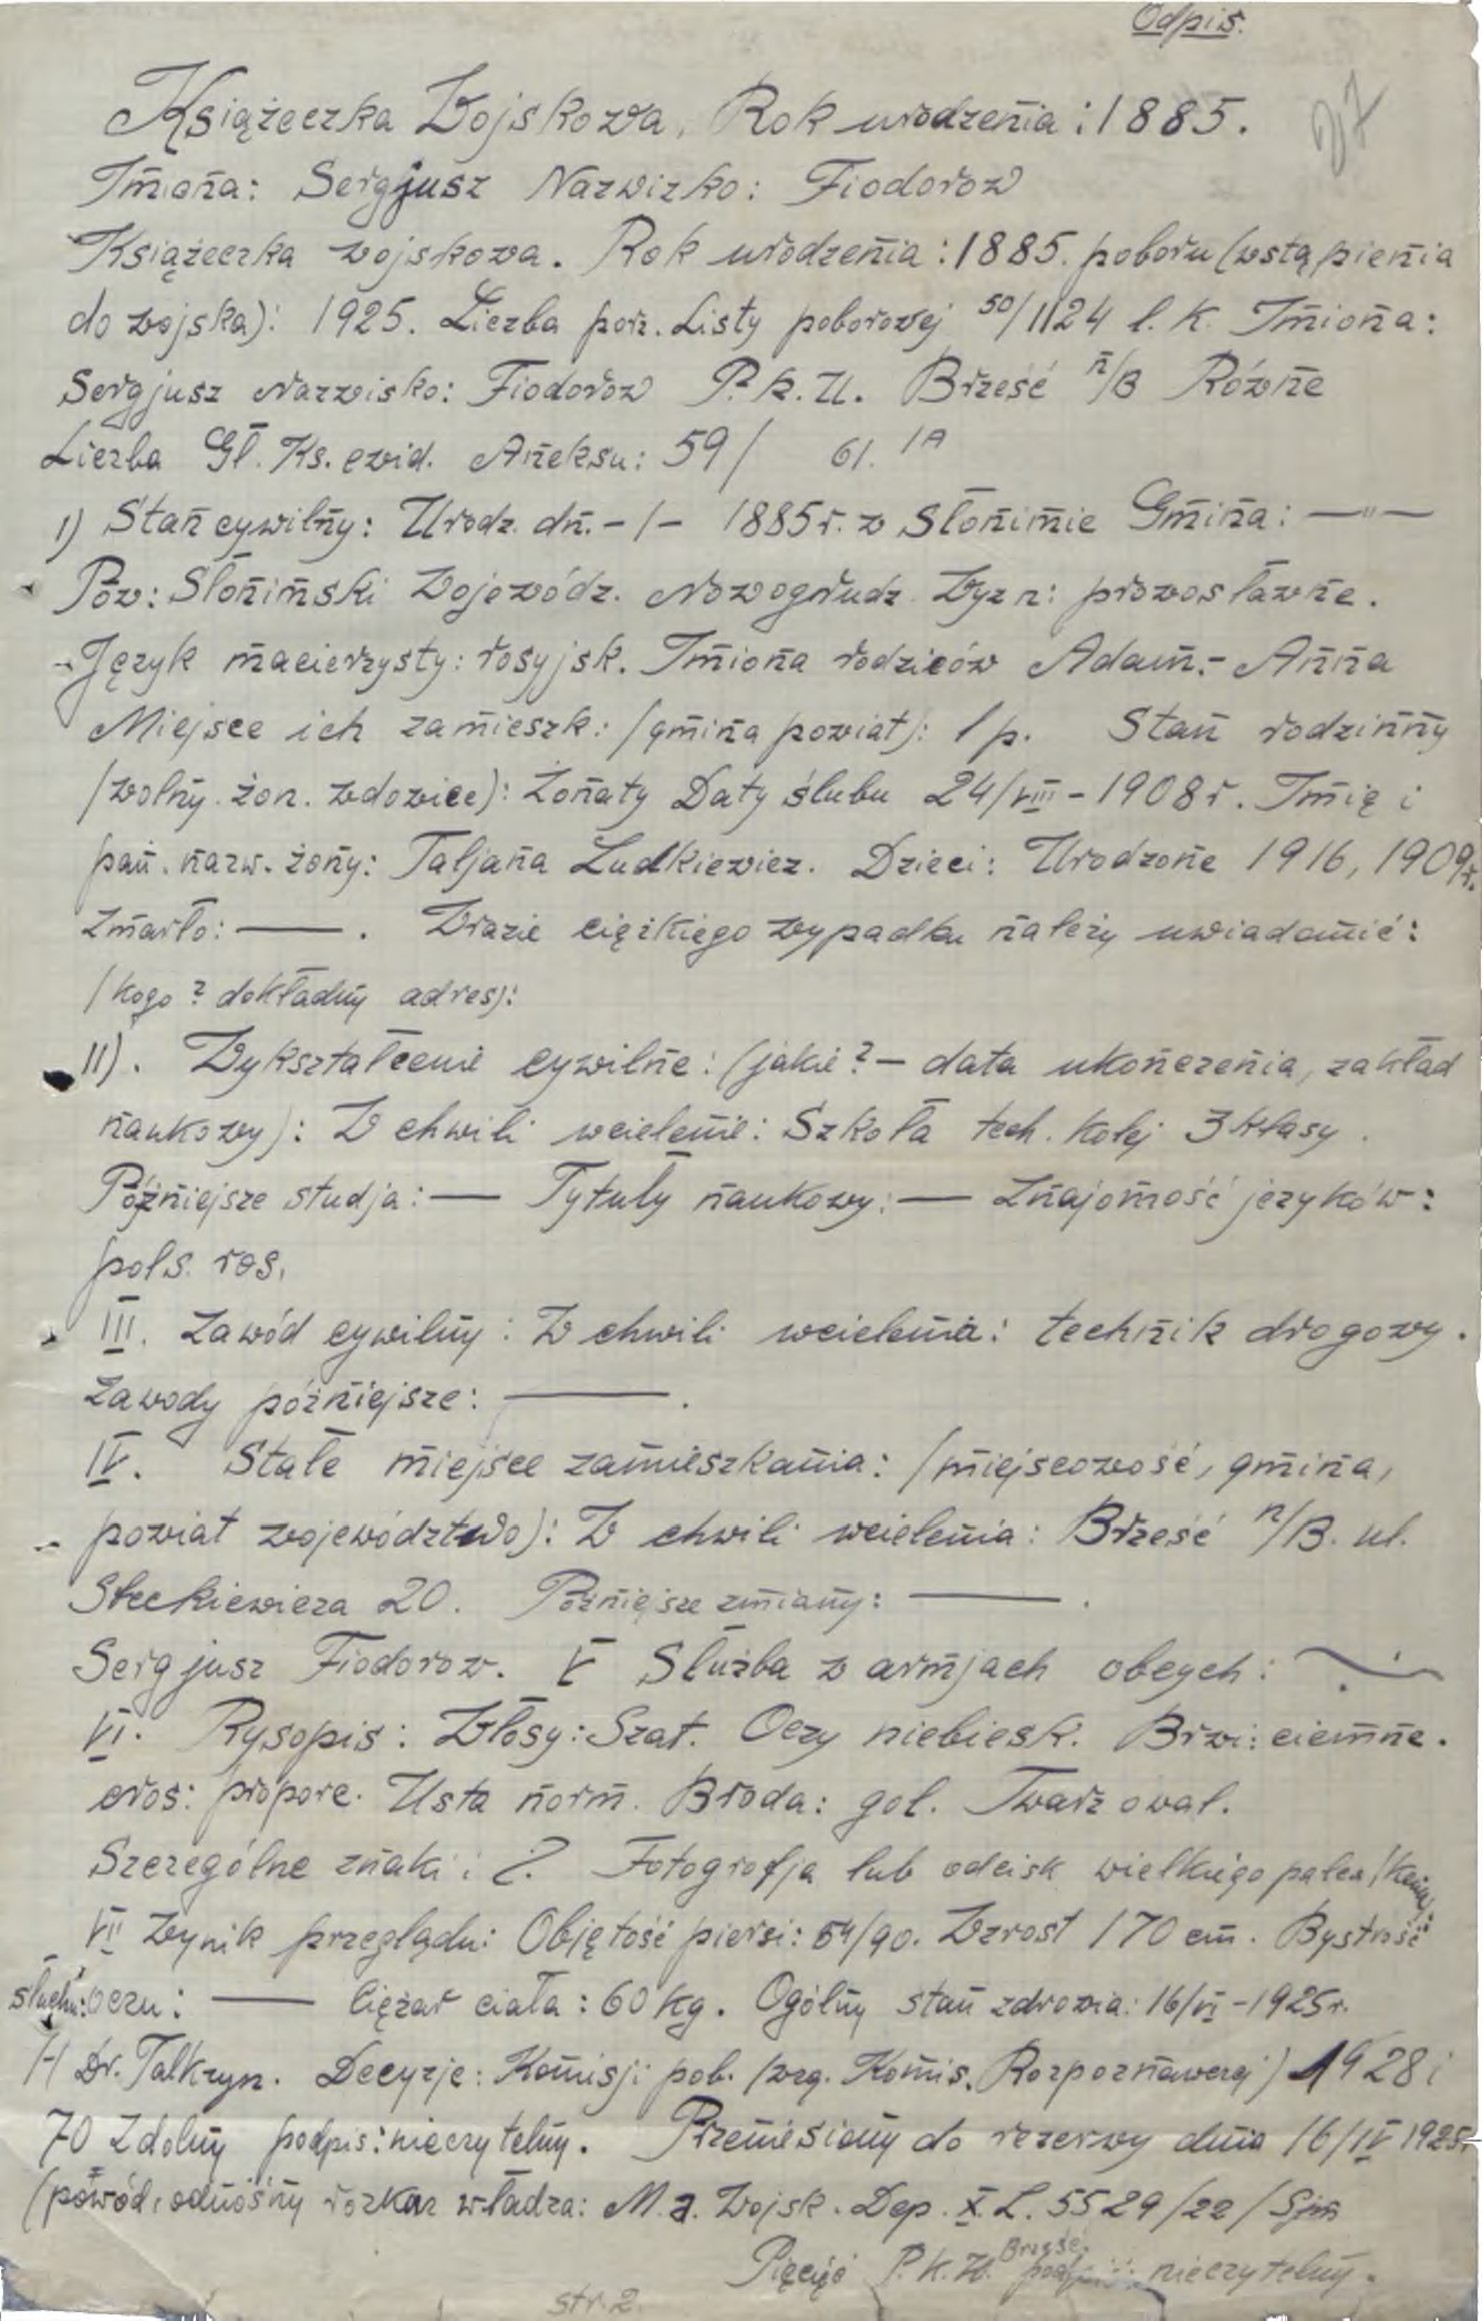 Odpis.
27
Książeczka Wojskowa. Rok urodzenia: 1885.
Imiona: Sergjusz Nazwizko: Fiodorow
Książeczka wojskowa. Rok urodzenia: 1885. poboru (wstąpienia
do wojska): 1925. Liczba porz. Listy poborowej 50/1124 l. K. Imiona:
Sergjusz Nazwisko: Fiodorow P.K.U. Brześć n/B Równe
Liczba Gł. Ks. ewid. Aneksu: 59/ 61. 1A
1) Stan cywilny: Urodz. dn. -/- 1885 r. w Słonimie Gmina: —"—
Pow: Słonimski Wojewódz. Nowogrudz Wyzn: prawosławne.
Język macierzysty: rosyjsk. Imiona rodziców Adam.- Anna
Miejsce ich zamieszk: /gmina powiat): / p. Stan rodzinny
/wolny. żon. wdowiec): Żonaty Daty ślubu 24/VIII - 1908 r. Imię i
pań. nazw. żony: Taljana Ludkiewicz. Dzieci: Urodzone 1916, 1909 r.
Zmarło: —. Wrazie ciężkiego wypadku należy uwiadomić:
/kogo? dokładny adres):
II). Wykształcenie cywilne: (jakie? — data ukończenia, zakład
naukowy): W chwili wcielenie: Szkoła tech. Kolej 3 klasy.
Późniejsze studja: — Tytuły naukowy: — Znajomość języków:
pols. ros.
III. Zawód cywilny: W chwili wcielenia: technik drogowy.
Zawody późniejsze: —.
IV. Stałe miejsce zamieszkania: /miejscowość, gmina,
powiat województwo): W chwili wcielenia: Brześć n/B. ul.
Steckiewicza 20. Późniejsze zmiany: —.
Sergjusz Fiodorow. V Służba w armjach obcych: —
VI. Rysopis: Włosy: Szat. Oczy niebiesk. Brwi: ciemne.
Nos: propore. Usta norm. Broda: gol. Twarz owal.
Szczególne znaki: ?. Fotografja lub odcisk wielkiego palca
VII Wynik przeglądu: Objętość piersi: 84/90. Wzrost 170 cm. Bystrość
słuchu: oczu: — Ciężar ciała: 60 kg. Ogólny stan zdrowia: 16/VI - 1925 r.
/-/ Dr. Talkzyn. Decyzje: Komisji pob. /wzg. Komis. Rozpoznawczej) 1928 i
70 Zdolny podpis: nieczytelny. Przeniesiony do rezerwy dnia 16/IV 1925 r.
(powód, odnośny rozkaz władza: M. S. Wojsk. Dep. X. L. 5529/22
Pięczęć P.K.U. Brześć. podpis: nieczytelny.
str. 2.